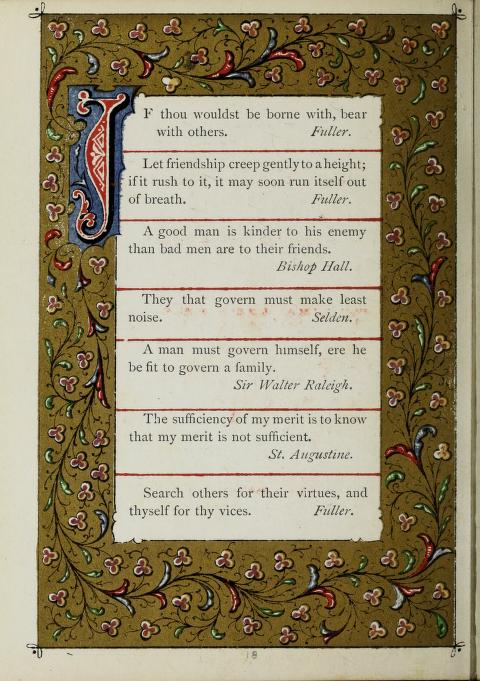 IF thou wouldst be borne with, bear
with others. Fuller.
Let friendship creep gently to a height;
if it rush to it, it may soon run itself out
of breath. Fuller.
A good man is kinder to his enemy
than bad men are to their friends.
Bishop Hall.
They that govern must make least
noise. Selden.
A man must govern himself, ere he
be fit to govern a family.
Sir Walter Raleigh.
The sufficiency of my merit is to know
that my merit is not sufficient.
St. Augustine.
Search others for their virtues, and
thyself for thy vices. Fuller.
18